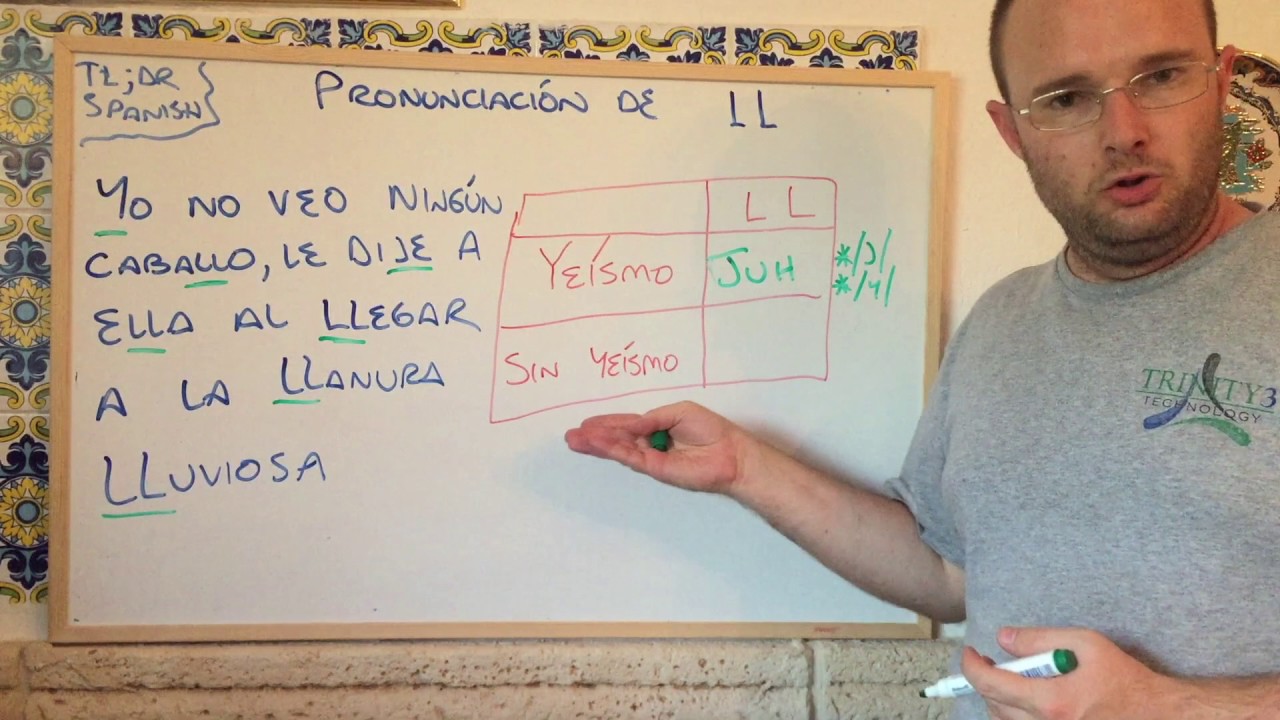 TL;DR
SPANISH
PRONUNCIACIÓN DE LL
YO NO VEO NINGÚN
CABALLO, LE DIJE A
ELLA AL LLEGAR
A LA LLANURA
LLUVIOSA
LL
YEÍSMO JUH */J/
*/Y/
SIN YEÍSMO
TRINITY3
TECHNOLOGY